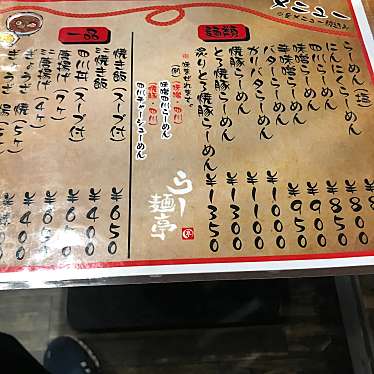 メニュー
麺類
らーめん(塩)
にんにくらーめん
四川らーめん
味噌らーめん ¥850
辛味噌らーめん
バターらーめん
カリバタらーめん
焼豚らーめん ¥1100
とろ焼豚らーめん ¥1300
炙りとろ焼豚らーめん ¥1350
※味まぜれます。
(例)
味噌・四川
味噌四川らーめん
焼豚・四川
四川チャーシューめん
らー麺亭
一品
焼き飯(スープ付) ¥650
ミニ焼き飯 ¥400
四川丼(スープ付)
唐揚げ(7ヶ)
ミニ唐揚げ(4ヶ) ¥400
ぎょうざ 焼(5ヶ)
ぎょうざ 湯